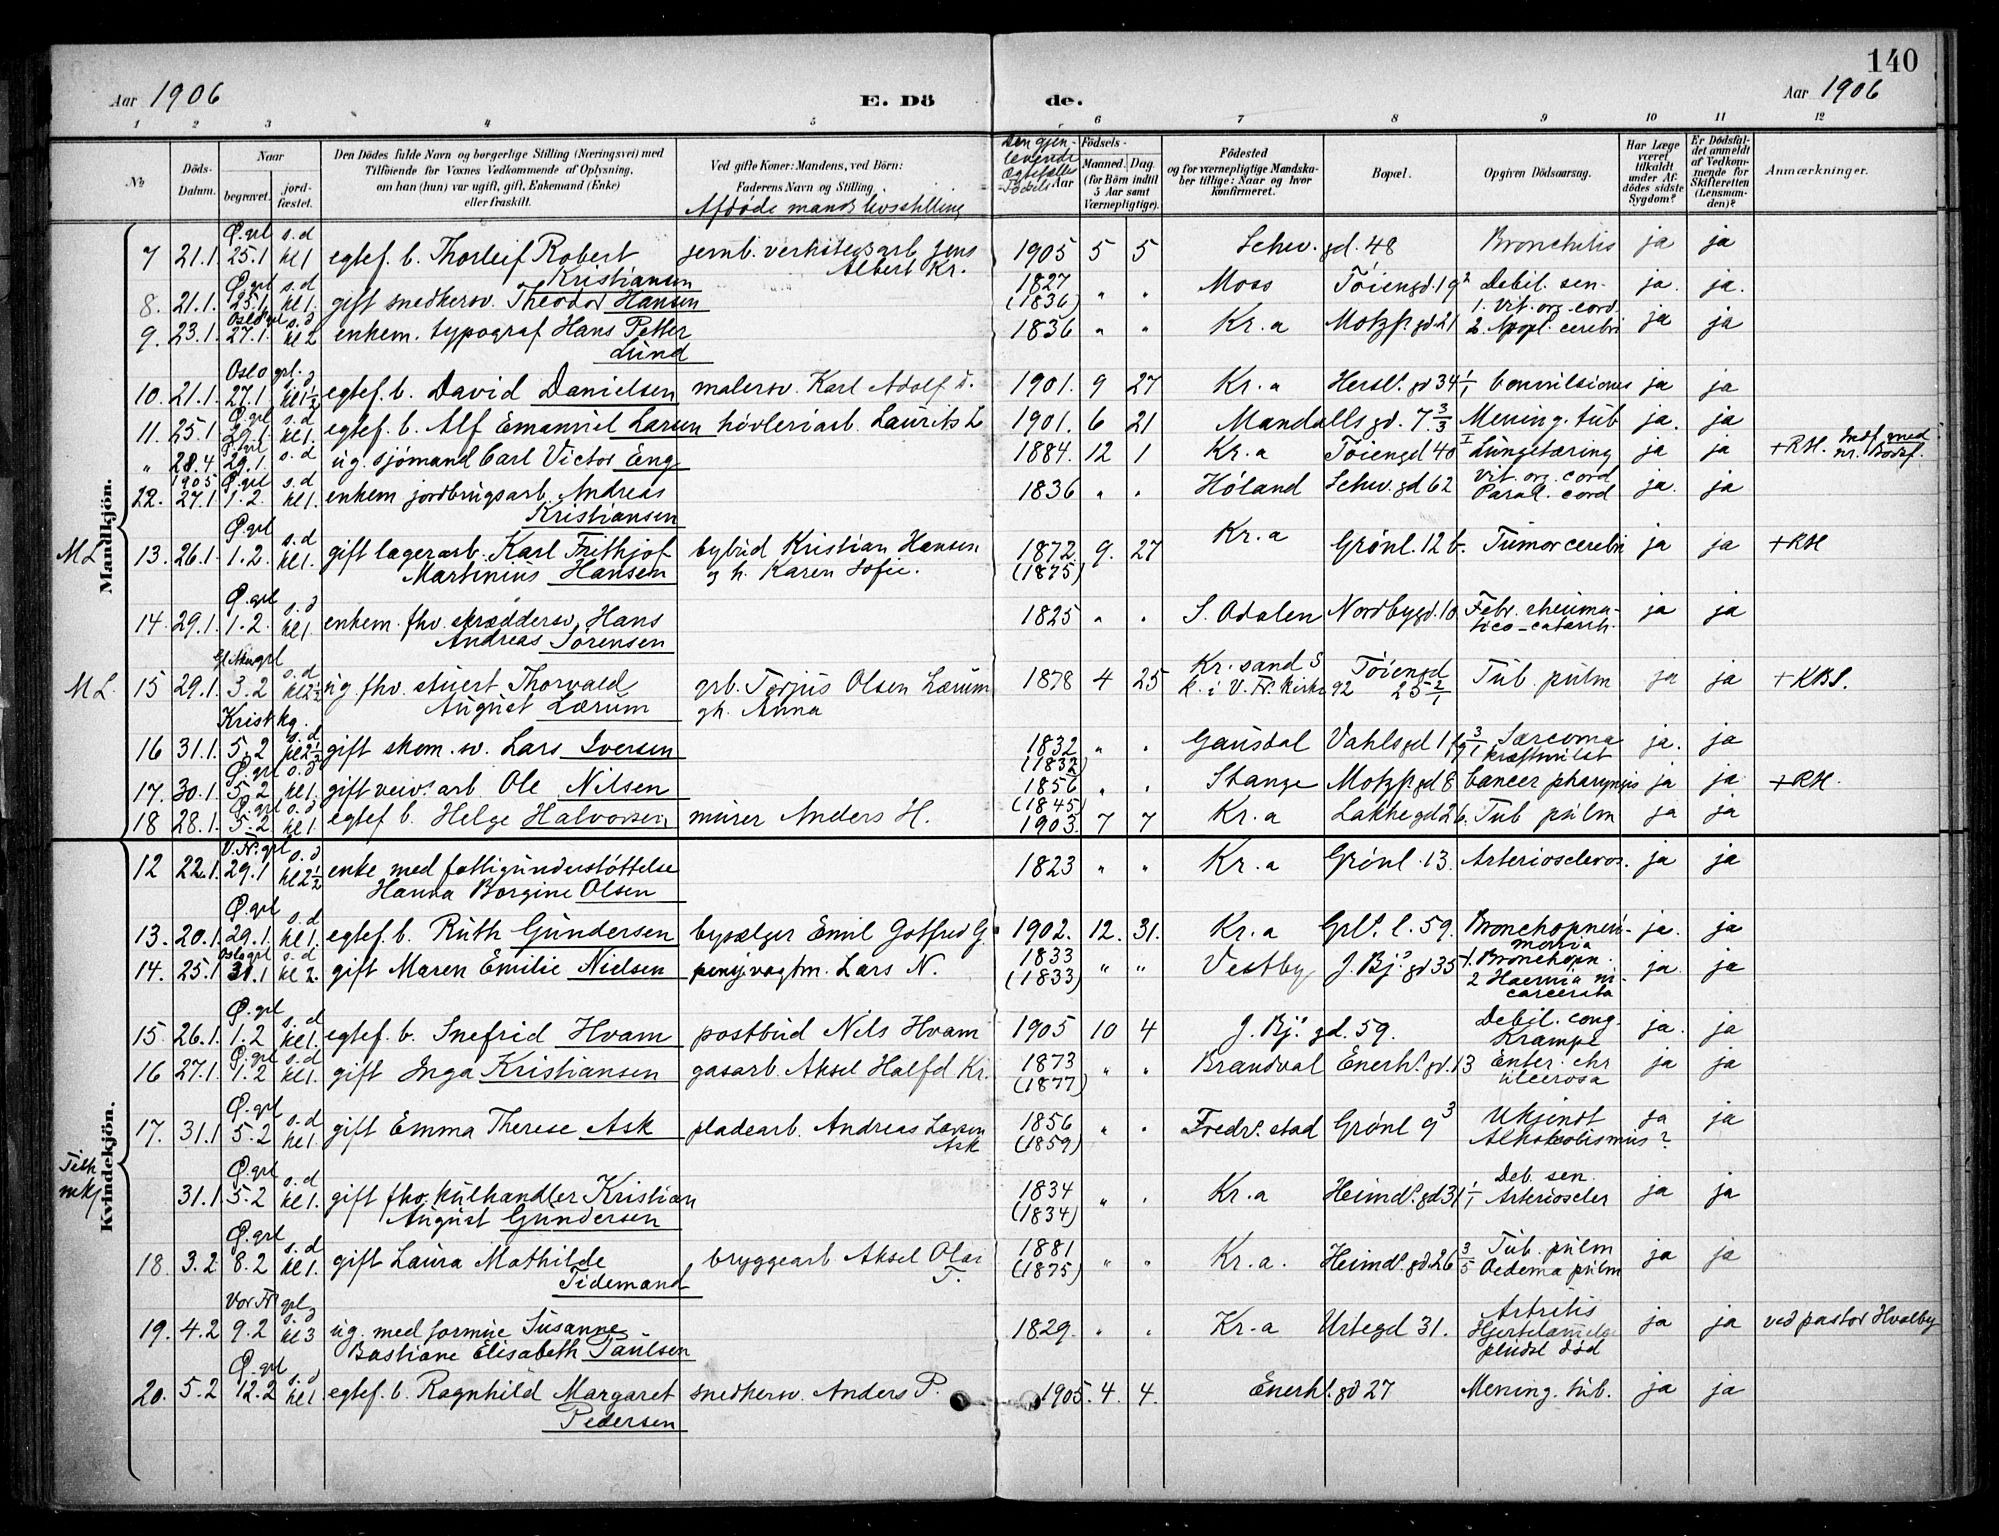 140
Aar 1906 E. Dö de. Aar 1906
1 2 3 4 5 6 7 8 9 10 11 12
No
Döds-Datum.
Naar
begravet.
jord-fæstet.
Den Dödes fulde Navn og borgerlige Stilling (Næringsvei) med
Tilföiende for Voxnes Vedkommende af Oplysning,
om han (hun) var ugift, gift, Enkemand (Enke)
eller fraskilt.
Ved gifte Koner: Mandens, ved Börn:
Faderens Navn og Stilling.
Afdøde mands livsstilling
Den gjen-
levende
ægtefælles
Fødsels Aar
Födsels-
Maaned. Dag.
(for Börn indtil
5 Aar samt
Værnepligtige).
Födested
og for værnepligtige Mandska-
ber tillige: Naar og hvor
konfirmeret.
Bopæl.
Opgiven Dödsaarsag.
Har Læge
været
tilkaldt
under Af-
dödes sidste
Sygdom?
Er Dödsfal-
det anmeldt
af Vedkom-
mende for
Skifteretten
(Lensman-
den)?
Anmærkninger.
Mandkjön.
Ø. grl s.d
7 21.1 25.1 kl 1 egtef. b. Thorleif Robert jernb. verkstedsarb. Jens 1905 5 5 Schw. gd. 48 Bronchitis ja ja
Kristiansen Albert Kr.
Ø. grl s.d 1827
8. 21.1. 25.1. kl 1. gift snedkersv. Theodor Hansen (1836) " " Moss Töiengd. 19² Debil. sen. ja. ja.
Oslo grl s.d 1. Vit. org. cord.
9. 23.1. 27.1. kl 2 enkem. typograf Hans Petter 1836 " " Kr.a Motzf. gd. 21 2. Apopl. cerebri ja ja
Lund
Oslo grl. s.d
10. 21.1. 27.1 kl 1½ egtef. b. David Danielsen malersv. Karl Adolf D. 1901. 9 27 Kr.a Hersl. gd 34 1/1 Convulsiones ja ja
Ø grl s.d
11. 25.1 29.1. kl 1. egtef. b. Alf Emanuel Larsen høvleriarb. Laurits L 1901. 6 21 Mandalls gd. 7. 3/3 Mening. tub ja. ja
Ø grl s.d
" 28.4 1905 29.1. ug. sjömand Carl Victor Eng 1884. 12 1 Kr.a Töiengd 40 I Lungetæring ja ja +RH. Indf. med nr.
Ø grl s.d Vit. org. cord
22. 27.1 1.2. kl 1. enkem jordbrugsarb. Andreas 1836 " " Höland Schw. gd 62 Paral. cord ja. ja
Kristiansen
Ø grl s.d
ML 13. 26.1. 1.2. kl 1. gift lagerarb. Karl Frithjof bybud Kristian Hansen 1872 9. 27 Kr.a Grønl. 12 b. Tumor cerebri ja ja +RH
Martinius Hansen og h. Karen Sofie. (1875)
Ø. grl s.d
14. 29.1. 1.2. kl 1. enkem. fhv. skræddersv. Hans 1825 " " S. Odalen Nordbygd. 10 Febr. rheuma- ja ja
Andreas Sørensen tico-catarrh.
grl s.d
ML. 15 29.1. 3.2 kl 2½ ug fhv. stuert Thorvald grb. Terjus Olsen Lærum 1878 4 25 Kr. sand S Töiengd Tub. pulm ja ja +KBS.
August Lærum gh. Anna k. i V. Fr. kirke 92 25 2/1
Krist kg. s.d
16 31.1. 5.2 kl 2½ gift skom. sv. Lars Iversen 1832 " " Gausdal Vahls gd 1 3/1 Sarcoma ja. ja
(1832) kræftsvulst
Ø. grl s.d
17. 30.1. 5.2 kl 1. gift veiv. arb. Ole Nilsen 1856 " " Stange Motzf. gd 8 Cancer pharyngis ja ja +RH.
(1845)
Ø. grl s.d
18 28.1. 5.2 kl 1. egtef b. Helge Halvorsen murer Anders H. 1903. 7 7 Kr.a Lakkegd 26. Tub pulm ja ja
Kvindekjön.
V. Fr. grl s.d
12 22.1. 29.1 kl 2½ enke med fattigunderstøttelse 1823 " " Kr.a Grønl. 13. Arterioscleros. ja ja
Hanna Borgine Olsen
Ø. grl s.d
13. 20.1. 29.1. kl 1. egtef. b. Ruth Gundersen bysælger Emil Gotfred G. 1902. 12. 31. Kr.a Grl. l. 59. Bronchopneu- ja. ja
monia
Oslo grl s.d 1833 1. Bronchopn.
14. 25.1 31.1 kl 2. gift Maren Emilie Nielsen vagtm. Lars N. (1833) " " Vestby J. Bj. gd 35 2 Haernia in- ja. ja
carcerata
Ø. grl s.d Debil. cong.
15. 26.1. 1.2 kl 1. egtef. b. Snefrid Hvam postbud Nils Hvam 1905 10 4 J. Bj. gd. 59. Krampe ja. ja
Ø. grl s.d 1873
16 27.1. 1.2 kl 1. gift Inga Kristiansen gasarb. Aksel Halfd Kr. (1877) " " Brandval Enerh. gd. 13 Enter. chr ja ja
ulcerosa
Ø. grl s.d 1856 Ukjendt
17. 31.1 5.2 kl 1. gift Emma Therese Ask pladearb. Andreas Larsen (1859) " " Fredr. stad Grønl 9³ Alkoholismus? ja ja
Ask
Ø. grl s.d Deb. sen.
Tilh mkj 31.1 5.2 kl 1. gift fhv. kulhandler Kristian 1834 " " Kr.a Heimd. gd 31 1/1 Arterioscler ja ja
August Gundersen (1834)
Ø. grl s.d
18. 3.2 8.2 kl 1. gift Laura Mathilde bryggearb Aksel Olai 1881 " " Kr.a. Heimd. gd. 26 3/5 Tub. pulm ja ja
Tidemand T. (1875) Oedema pulm
Vor Fr grl s.d Artritis
19. 4.2 9.2 kl 3 ug. med formue Susanne 1829. " " Kr.a Urtegd 31. Hjertelammelse ja ja ved pastor Hvalby
Bastiane Elisabeth Paulsen pludsl død
Ø. grl s.d
20. 5.2 12.2 kl 1 egtef. b. Ragnhild Margaret snedkersv. Anders P. 1905. 4. 4. Enerh. gd 27 Mening. tub. ja ja
Pedersen